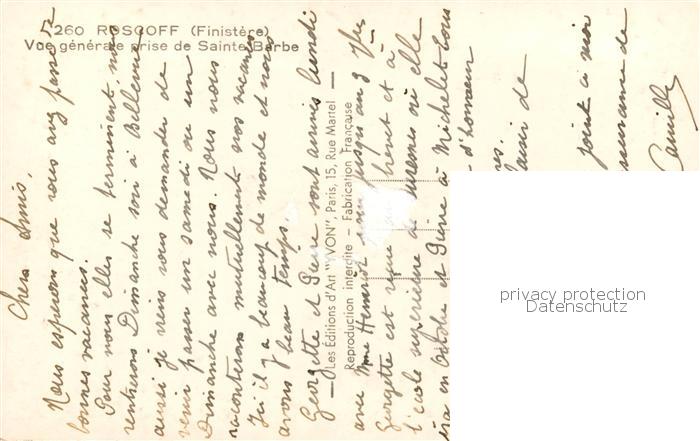 260 ROSCOFF (Finistère)
Vue générale prise de Sainte Barbe
Chers Amis,
Nous espérons que vous avez passé de
bonnes vacances.
Pour nous elles se terminent, nous
rentrerons Dimanche soir à Bellevue
aussi je viens vous demander de
venir passer un samedi ou un
Dimanche avec nous. Nous nous
raconterons mutuellement nos vacances
Ici il y a beaucoup de monde et nous
avons beau temps.
Georgette et Pierre sont arrivés lundi
avec Mme jusqu'au 3
Georgette est reçue et à
l'école supérieure de où elle
ira en Octobre et Pierre à Michelet
d'honneur
de
joint à moi
de
Camille
Les Editions d'Art "YVON", Paris, 15, Rue Martel
Reproduction interdite - Fabrication Française
privacy protection
(Datenschutz)